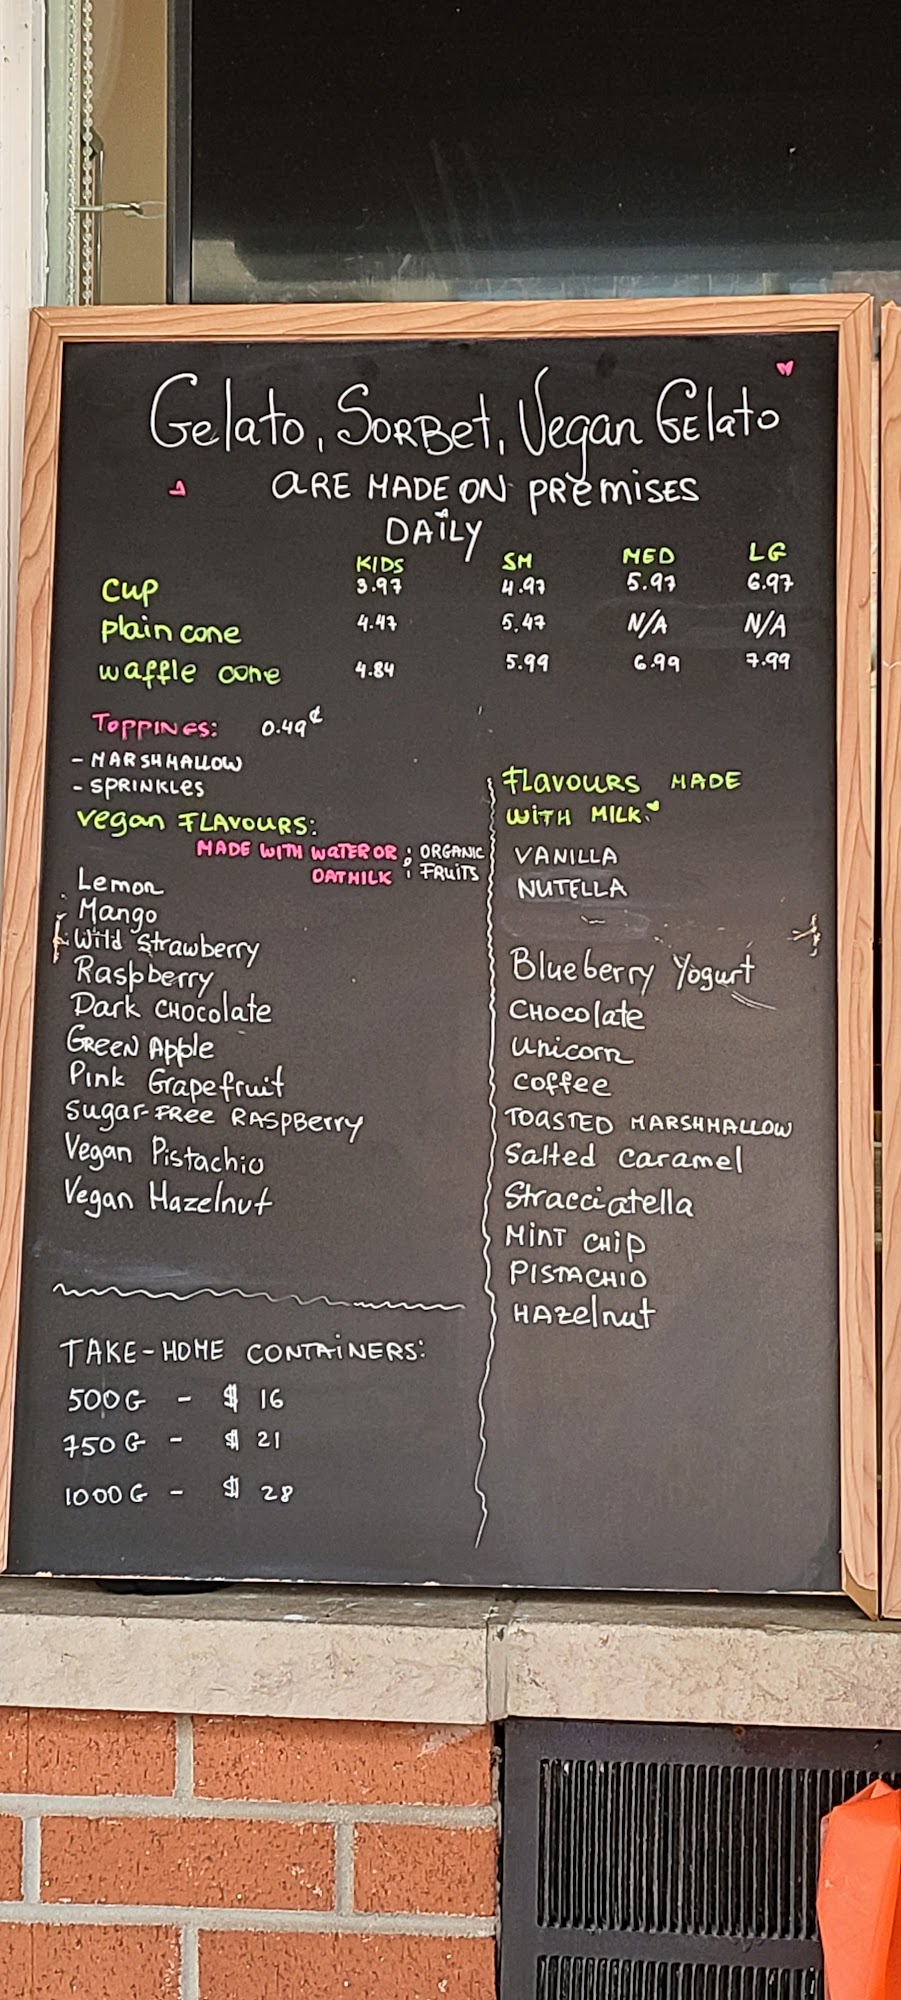 Gelato, SORBet, Vegan GElato
aRE MADE ON PRemISES
DAiLY
KIDS SM MED LG
cup 3.97 4.97 5.97 6.97
plain cone 4.47 5.47 N/A N/A
waffle cone 4.84 5.99 6.99 7.99
TOPPINGS: 0.49¢
- MARSHMALLOW
- SPRINKLES
vegan FLAVOURS:
MADE WITH WATER OR ; ORGANIC
OATMILK ; FRUITS
Lemon
Mango
Wild Strawberry
Raspberry
Dark CHocolate
GREEN Apple
Pink Grapefruit
Sugar-FREE RASPBerry
Vegan Pistachio
Vegan Hazelnut
TAKE-HOME CONTAiNERS:
500G - $ 16
750G - $ 21
1000G - $ 28
FLavouRS MADE
WITH MILK:
VANILLA
NUTELLA
Blueberry Yogurt
CHOcolate
Unicorn
Coffee
TOASTED MARSHMALLOW
Salted Caramel
Stracciatella
MINT CHip
PISTACHIO
HAzelnut